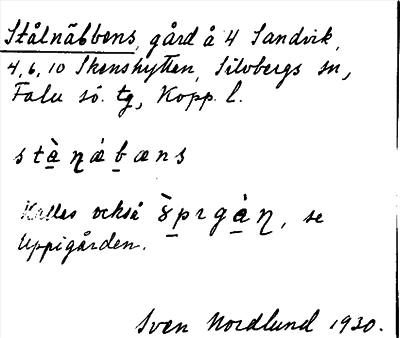 Stålnäbbens, gård å 4 Sandvik,
4, 6, 10 Skenshyttan, Silvbergs sn,
Falu sö. tg, Kopp. l.
stàṇábæns
Kallas också ... , se
Uppigården.
Sven Nordlund 1930.